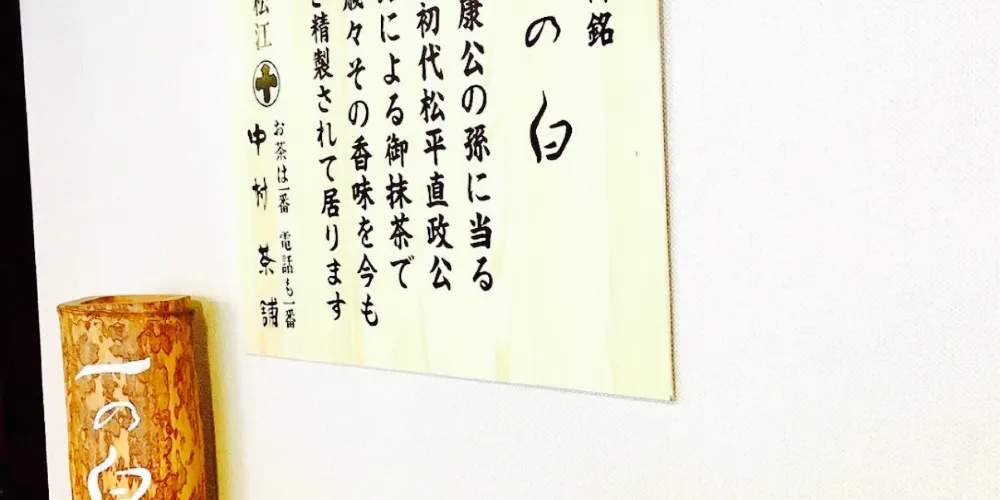 銘
の白
康公の孫に当る
初代松平直政公
による御抹茶で
々その香味を今も
精製されて居ります
松江
お茶は一番 電話も一番
中村茶舗
一の白